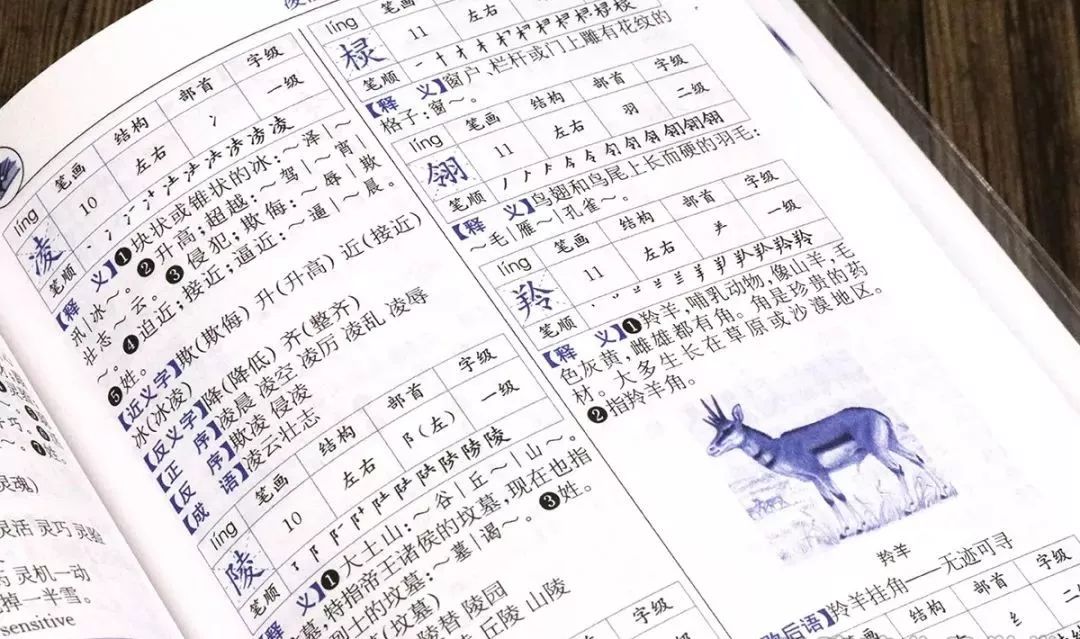 líng 笔画 结构 部首 字级
凌 10 左右 冫 一级
笔顺
【释 义】❶块状或锥状的冰:~泽|~
汛|冰~。❷升高;超越:~驾|~霄|
壮志~云。❸侵犯;欺侮:~辱|欺
~。❹迫近;接近;逼近:~逼|~晨。
❺姓。
【近义字】欺(欺侮) 升(升高) 近(接近)
冰(冰凌)
【反义字】降(降低) 齐(整齐)
【正 序】凌晨 凌空 凌厉 凌乱 凌辱
【反 序】欺凌 侵凌
【成 语】凌云壮志
líng 笔画 结构 部首 字级
陵 10 左右 阝(左) 一级
笔顺
【释 义】❶大土山:~谷|丘~|山~。
墓,特指帝王诸侯的坟墓,现在也指
烈士的坟墓:~墓|谒~。❸姓。
(坟墓)
陵替 陵园
丘陵 山陵
字级
líng 笔画
棂 11 左右
笔顺
【释 义】窗户、栏杆或门上雕有花纹的
格子:窗~。
líng 笔画 结构 部首 字级
翎 11 左右 羽 二级
笔顺
【释 义】鸟翅和鸟尾上长而硬的羽毛:
~毛|雁~|孔雀~。
líng 笔画 结构 部首 字级
羚 11 左右 ⺶ 一级
笔顺
【释 义】❶羚羊,哺乳动物,像山羊,毛
色灰黄,雌雄都有角。角是珍贵的药
材。大多生长在草原或沙漠地区。
❷指羚羊角。
羚羊
后语】羚羊挂角——无迹可寻
笔画 结构 部首 字级
左右 纟 二级
灵魂)
灵活 灵巧 灵验
灵机一动
掉一半雪。
sensitive